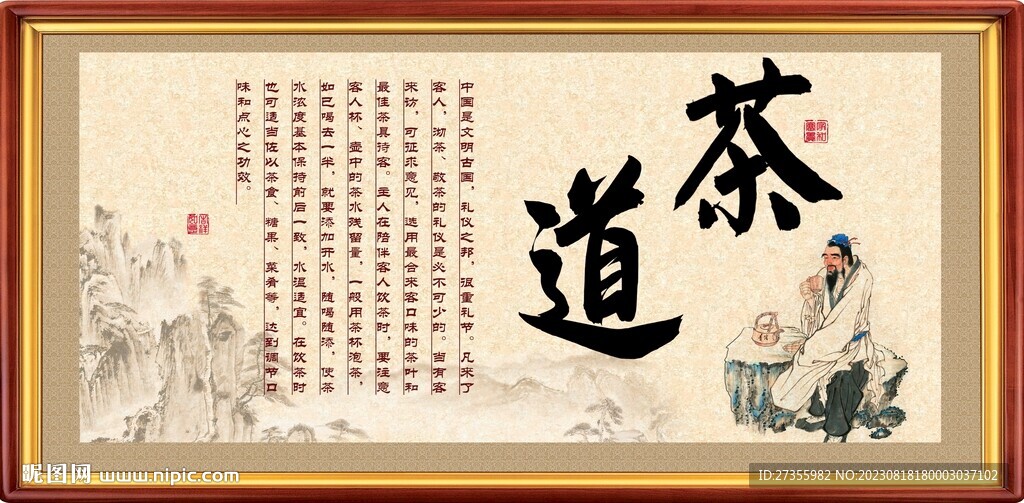 茶道
中国是文明古国，礼仪之邦，很重礼节。凡来了
客人，沏茶、敬茶的礼仪是必不可少的。当有客
来访，可征求意见，选用最合来客口味的茶叶和
最佳茶具待客。主人在陪伴客人饮茶时，要注意
客人杯、壶中的茶水残留量，一般用茶杯泡茶，
如已喝去一半，就要添加开水，随喝随添，使茶
水浓度基本保持前后一致，水温适宜。在饮茶时
也可适当佐以茶食、糖果、菜肴等，达到调节口
味和点心之功效。
昵图网 www.nipic.com
ID:27355982 NO:20230818180003037102